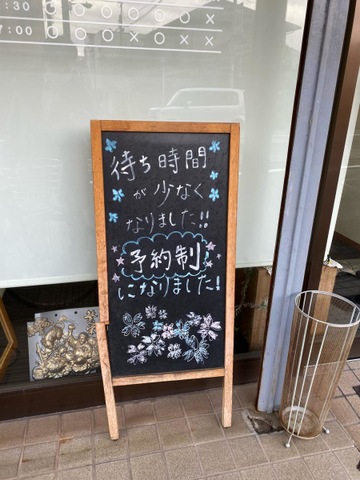 :30 ○○○○○○
:00 ○○○○××
待ち時間
が少なく
なりました!!
予約制
になりました!